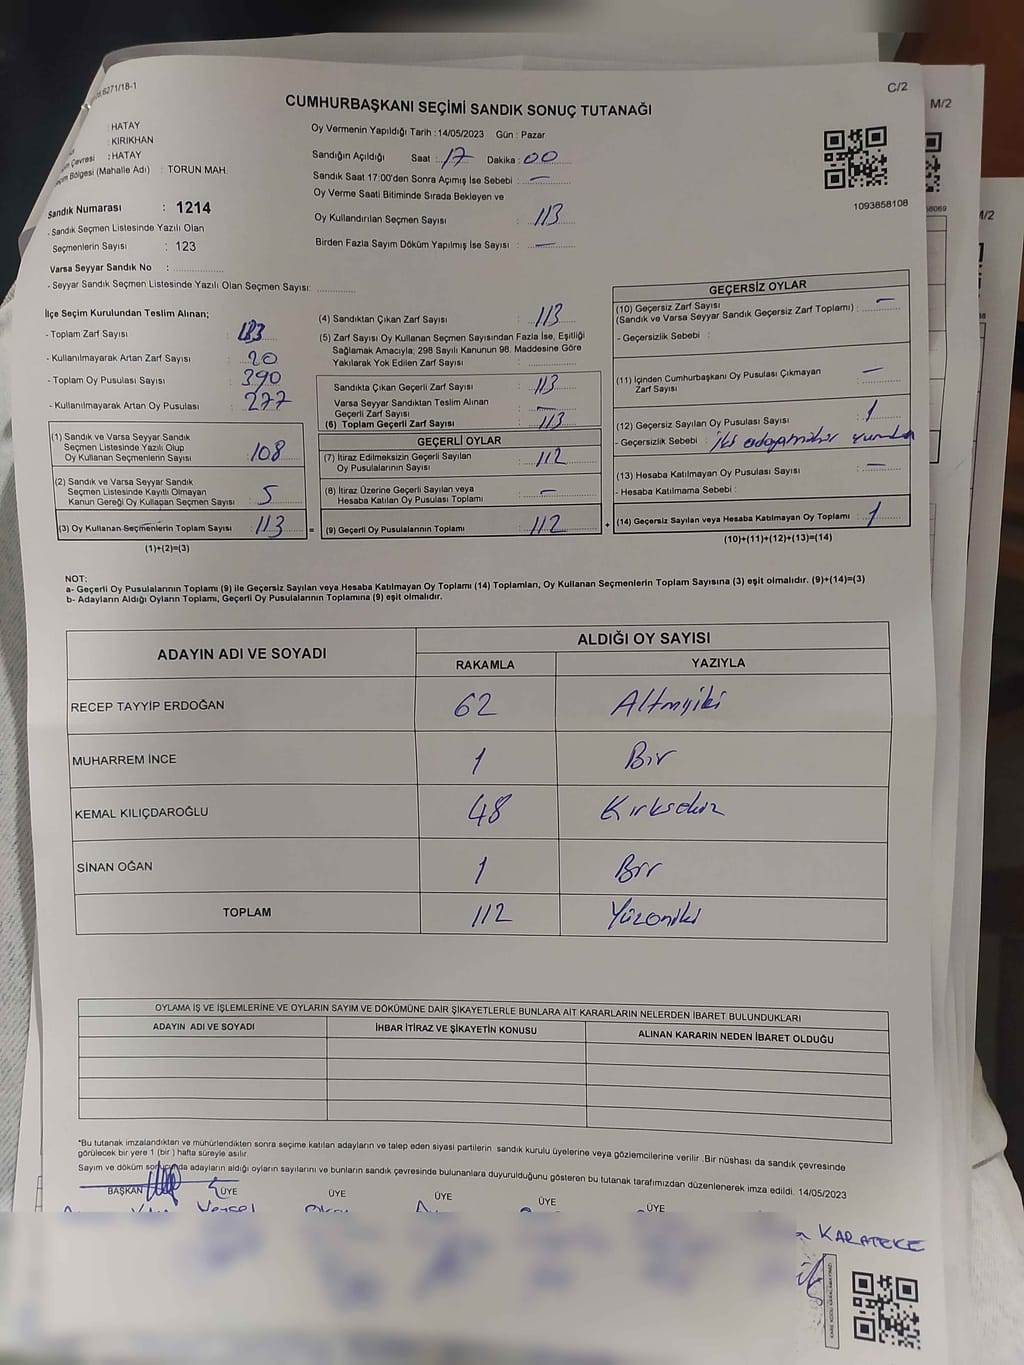 6271/18-1
C/2
M/2
CUMHURBAŞKANI SEÇİMİ SANDIK SONUÇ TUTANAĞI
: HATAY
: KIRIKHAN
Çevresi : HATAY
Bölgesi (Mahalle Adı) : TORUN MAH.
Sandık Numarası : 1214
- Sandık Seçmen Listesinde Yazılı Olan
Seçmenlerin Sayısı : 123
Varsa Seyyar Sandık No :
- Seyyar Sandık Seçmen Listesinde Yazılı Olan Seçmen Sayısı:
Oy Vermenin Yapıldığı Tarih : 14/05/2023 Gün : Pazar
Sandığın Açıldığı Saat : 17 Dakika : 00
Sandık Saat 17:00'den Sonra Açımış İse Sebebi : —
Oy Verme Saati Bitiminde Sırada Bekleyen ve
Oy Kullandırılan Seçmen Sayısı : 113
Birden Fazla Sayım Döküm Yapılmış İse Sayısı : —
1093858108
İlçe Seçim Kurulundan Teslim Alınan;
- Toplam Zarf Sayısı :
- Kullanılmayarak Artan Zarf Sayısı : 20
- Toplam Oy Pusulası Sayısı : 390
- Kullanılmayarak Artan Oy Pusulası : 277
(1) Sandık ve Varsa Seyyar Sandık
Seçmen Listesinde Yazılı Olup
Oy Kullanan Seçmenlerin Sayısı : 108
(2) Sandık ve Varsa Seyyar Sandık
Seçmen Listesinde Kayıtlı Olmayan
Kanun Gereği Oy Kullanan Seçmen Sayısı : 5
(3) Oy Kullanan Seçmenlerin Toplam Sayısı : 113
(1)+(2)=(3)
(4) Sandıktan Çıkan Zarf Sayısı : 113
(5) Zarf Sayısı Oy Kullanan Seçmen Sayısından Fazla İse, Eşitliği
Sağlamak Amacıyla; 298 Sayılı Kanunun 98. Maddesine Göre
Yakılarak Yok Edilen Zarf Sayısı :
Sandıkta Çıkan Geçerli Zarf Sayısı : 113
Varsa Seyyar Sandıktan Teslim Alınan
Geçerli Zarf Sayısı : —
(6) Toplam Geçerli Zarf Sayısı : 113
GEÇERLİ OYLAR
(7) İtiraz Edilmeksizin Geçerli Sayılan
Oy Pusulalarının Sayısı : 112
(8) İtiraz Üzerine Geçerli Sayılan veya
Hesaba Katılan Oy Pusulası Toplamı : —
= (9) Geçerli Oy Pusulalarının Toplamı : 112 +
GEÇERSİZ OYLAR
(10) Geçersiz Zarf Sayısı
(Sandık ve Varsa Seyyar Sandık Geçersiz Zarf Toplamı) : —
- Geçersizlik Sebebi :
(11) İçinden Cumhurbaşkanı Oy Pusulası Çıkmayan
Zarf Sayısı : —
(12) Geçersiz Sayılan Oy Pusulası Sayısı : 1
- Geçersizlik Sebebi : iki adaya
(13) Hesaba Katılmayan Oy Pusulası Sayısı : —
- Hesaba Katılmama Sebebi :
(14) Geçersiz Sayılan veya Hesaba Katılmayan Oy Toplamı : 1
(10)+(11)+(12)+(13)=(14)
NOT:
a- Geçerli Oy Pusulalarının Toplamı (9) ile Geçersiz Sayılan veya Hesaba Katılmayan Oy Toplamı (14) Toplamları, Oy Kullanan Seçmenlerin Toplam Sayısına (3) eşit olmalıdır. (9)+(14)=(3)
b- Adayların Aldığı Oyların Toplamı, Geçerli Oy Pusulalarının Toplamına (9) eşit olmalıdır.
ADAYIN ADI VE SOYADI ALDIĞI OY SAYISI
RAKAMLA YAZIYLA
RECEP TAYYİP ERDOĞAN 62 Altmışiki
MUHARREM İNCE 1 Bir
KEMAL KILIÇDAROĞLU 48 Kırksekiz
SİNAN OĞAN 1 Bir
TOPLAM 112 Yüzoniki
OYLAMA İŞ VE İŞLEMLERİNE VE OYLARIN SAYIM VE DÖKÜMÜNE DAİR ŞİKAYETLERLE BUNLARA AİT KARARLARIN NELERDEN İBARET BULUNDUKLARI
ADAYIN ADI VE SOYADI İHBAR İTİRAZ VE ŞİKAYETİN KONUSU ALINAN KARARIN NEDEN İBARET OLDUĞU
*Bu tutanak imzalandıktan ve mühürlendikten sonra seçime katılan adayların ve talep eden siyasi partilerin sandık kurulu üyelerine veya gözlemcilerine verilir .Bir nüshası da sandık çevresinde
görülecek bir yere 1 (bir ) hafta süreyle asılır.
Sayım ve döküm sonucunda adayların aldığı oyların sayılarını ve bunların sandık çevresinde bulunanlara duyurulduğunu gösteren bu tutanak tarafımızdan düzenlenerek imza edildi. 14/05/2023
BAŞKAN ÜYE ÜYE ÜYE ÜYE ÜYE
KARATEKE